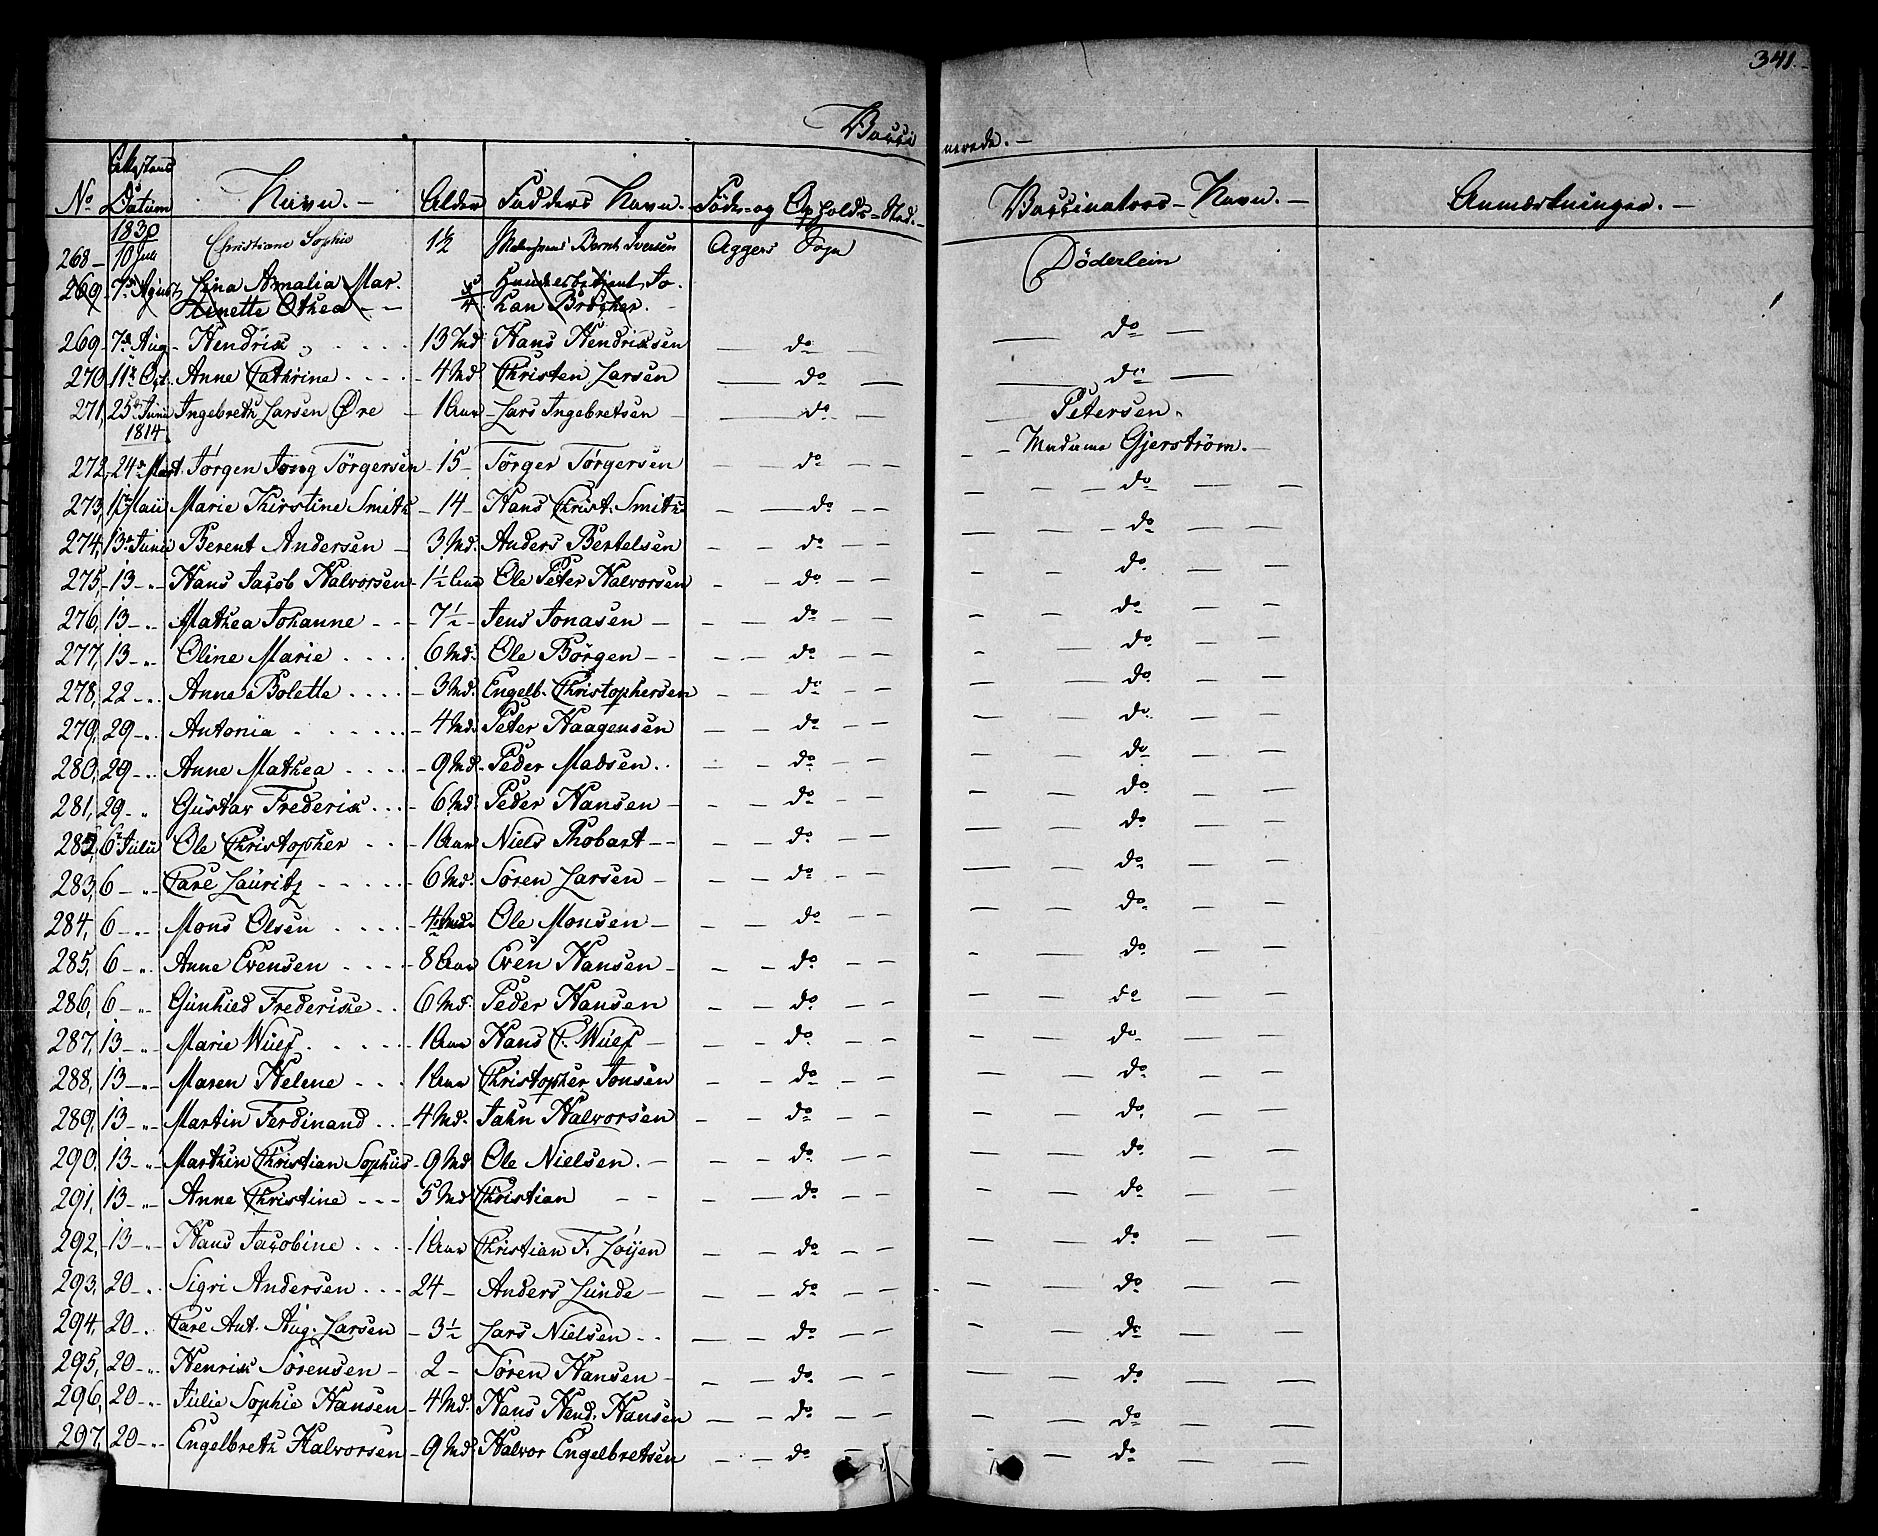 341.
Vacci nerede. —
No. Attestens Datum Navn. — Alder Fadders Navn. Føde- og Opholds-Sted. Vaccinators Navn. — Anmærkninger. —
1830
268 — 10 Juli Christiane Sophie 1½ Bernt Iversen Aggers Sogn Döderlein
269 7de August Lina Amalia Mar. 5/4 Jo-
Linette Othea — — han Brøcher.
269 7de Aug. Hendrik 13 Md Hans Hendriksen — do — do —
270 11te Oct. Anne Cathrine 4 Md Christen Larsen — do — — do —
271, 25de Juni Ingebreth Larsen Øre — 1 Aar Lars Ingebretsen — do — Petersen.
1814
272, 24de Mart. Jørgen Jong Jørgensen — 15 — Jørger Jørgersen — do — — Madame Gjerstrøm. —
273, 1te Maii Marie Kirstine Smith — 14 — Hans Christ. Smith — do — — do —
274, 13de Junii Berent Andersen — 3 Md. Anders Bertelsen — do — do —
275, 13 — „ Hans Jacob Halvorsen — 1½ Aar Ole Peter Halvorsen — do — do —
276, 13 — „ Mathea Johanne — 7½ — Jens Jonasen — do — do —
277, 13 — „ Oline Marie 6 Md. Ole Börgen — do — do —
278, 22 — „ Anne Bolette 3 Md. Engelb. Christophersen — do — do —
279, 29 — „ Antonia 4 Md. Peter Haagensen — do — do —
280, 29 — „ Anne Mathea 9 Md. Peder Madsen — do — do —
281, 29 — „ Gustav Frederik 6 Md. Peder Hansen — do — do —
282 6te Julii Ole Christopher 1 Aar Niels Thobart — do — do —
283, 6 — „ Carl Lauritz 6 Md. Søren Larsen — do — do —
284, 6 — „ Mons Olsen 4 Md. Ole Monsen — do — do —
285, 6 — „ Anne Evensen 8 Aar Even Hansen — do — do —
286, 6 — „ Gunhild Frederikke 6 Md. Peder Hansen — do — do —
287, 13 — „ Marie Wulf 1 Aar Hans C. Wulf — do — do —
288, 13 — „ Maren Helene 1 Aar Christopher Jonsen — do — do —
289, 13 — „ Martin Ferdinand 4 Md. Jahn Halvorsen — do — do —
290, 13 — „ Marthin Christian Sophus 9 Md Ole Nielsen. — do — do —
291, 13 — „ Anne Christine 5 Md Christian — do — do —
292, 13 — „ Hans Jacobine 1 Aar Christian F. Løijen — do — do —
293, 20 — „ Sigri Andersen 24 — Anders Lunde — do — do —
294, 20 — „ Carl Ant. Aug. Larsen — 3½ Lars Nielsen — do — do —
295, 20 — „ Henrik Sørensen — 2 — Søren Hansen — do — do —
296, 20 — „ Julie Sophie Hansen — 4 Md. Hans Hend. Hansen — do — do —
297, 20 — „ Engelbreth Halvorsen — 9 Md Halvor Engelbretsen — do — do —